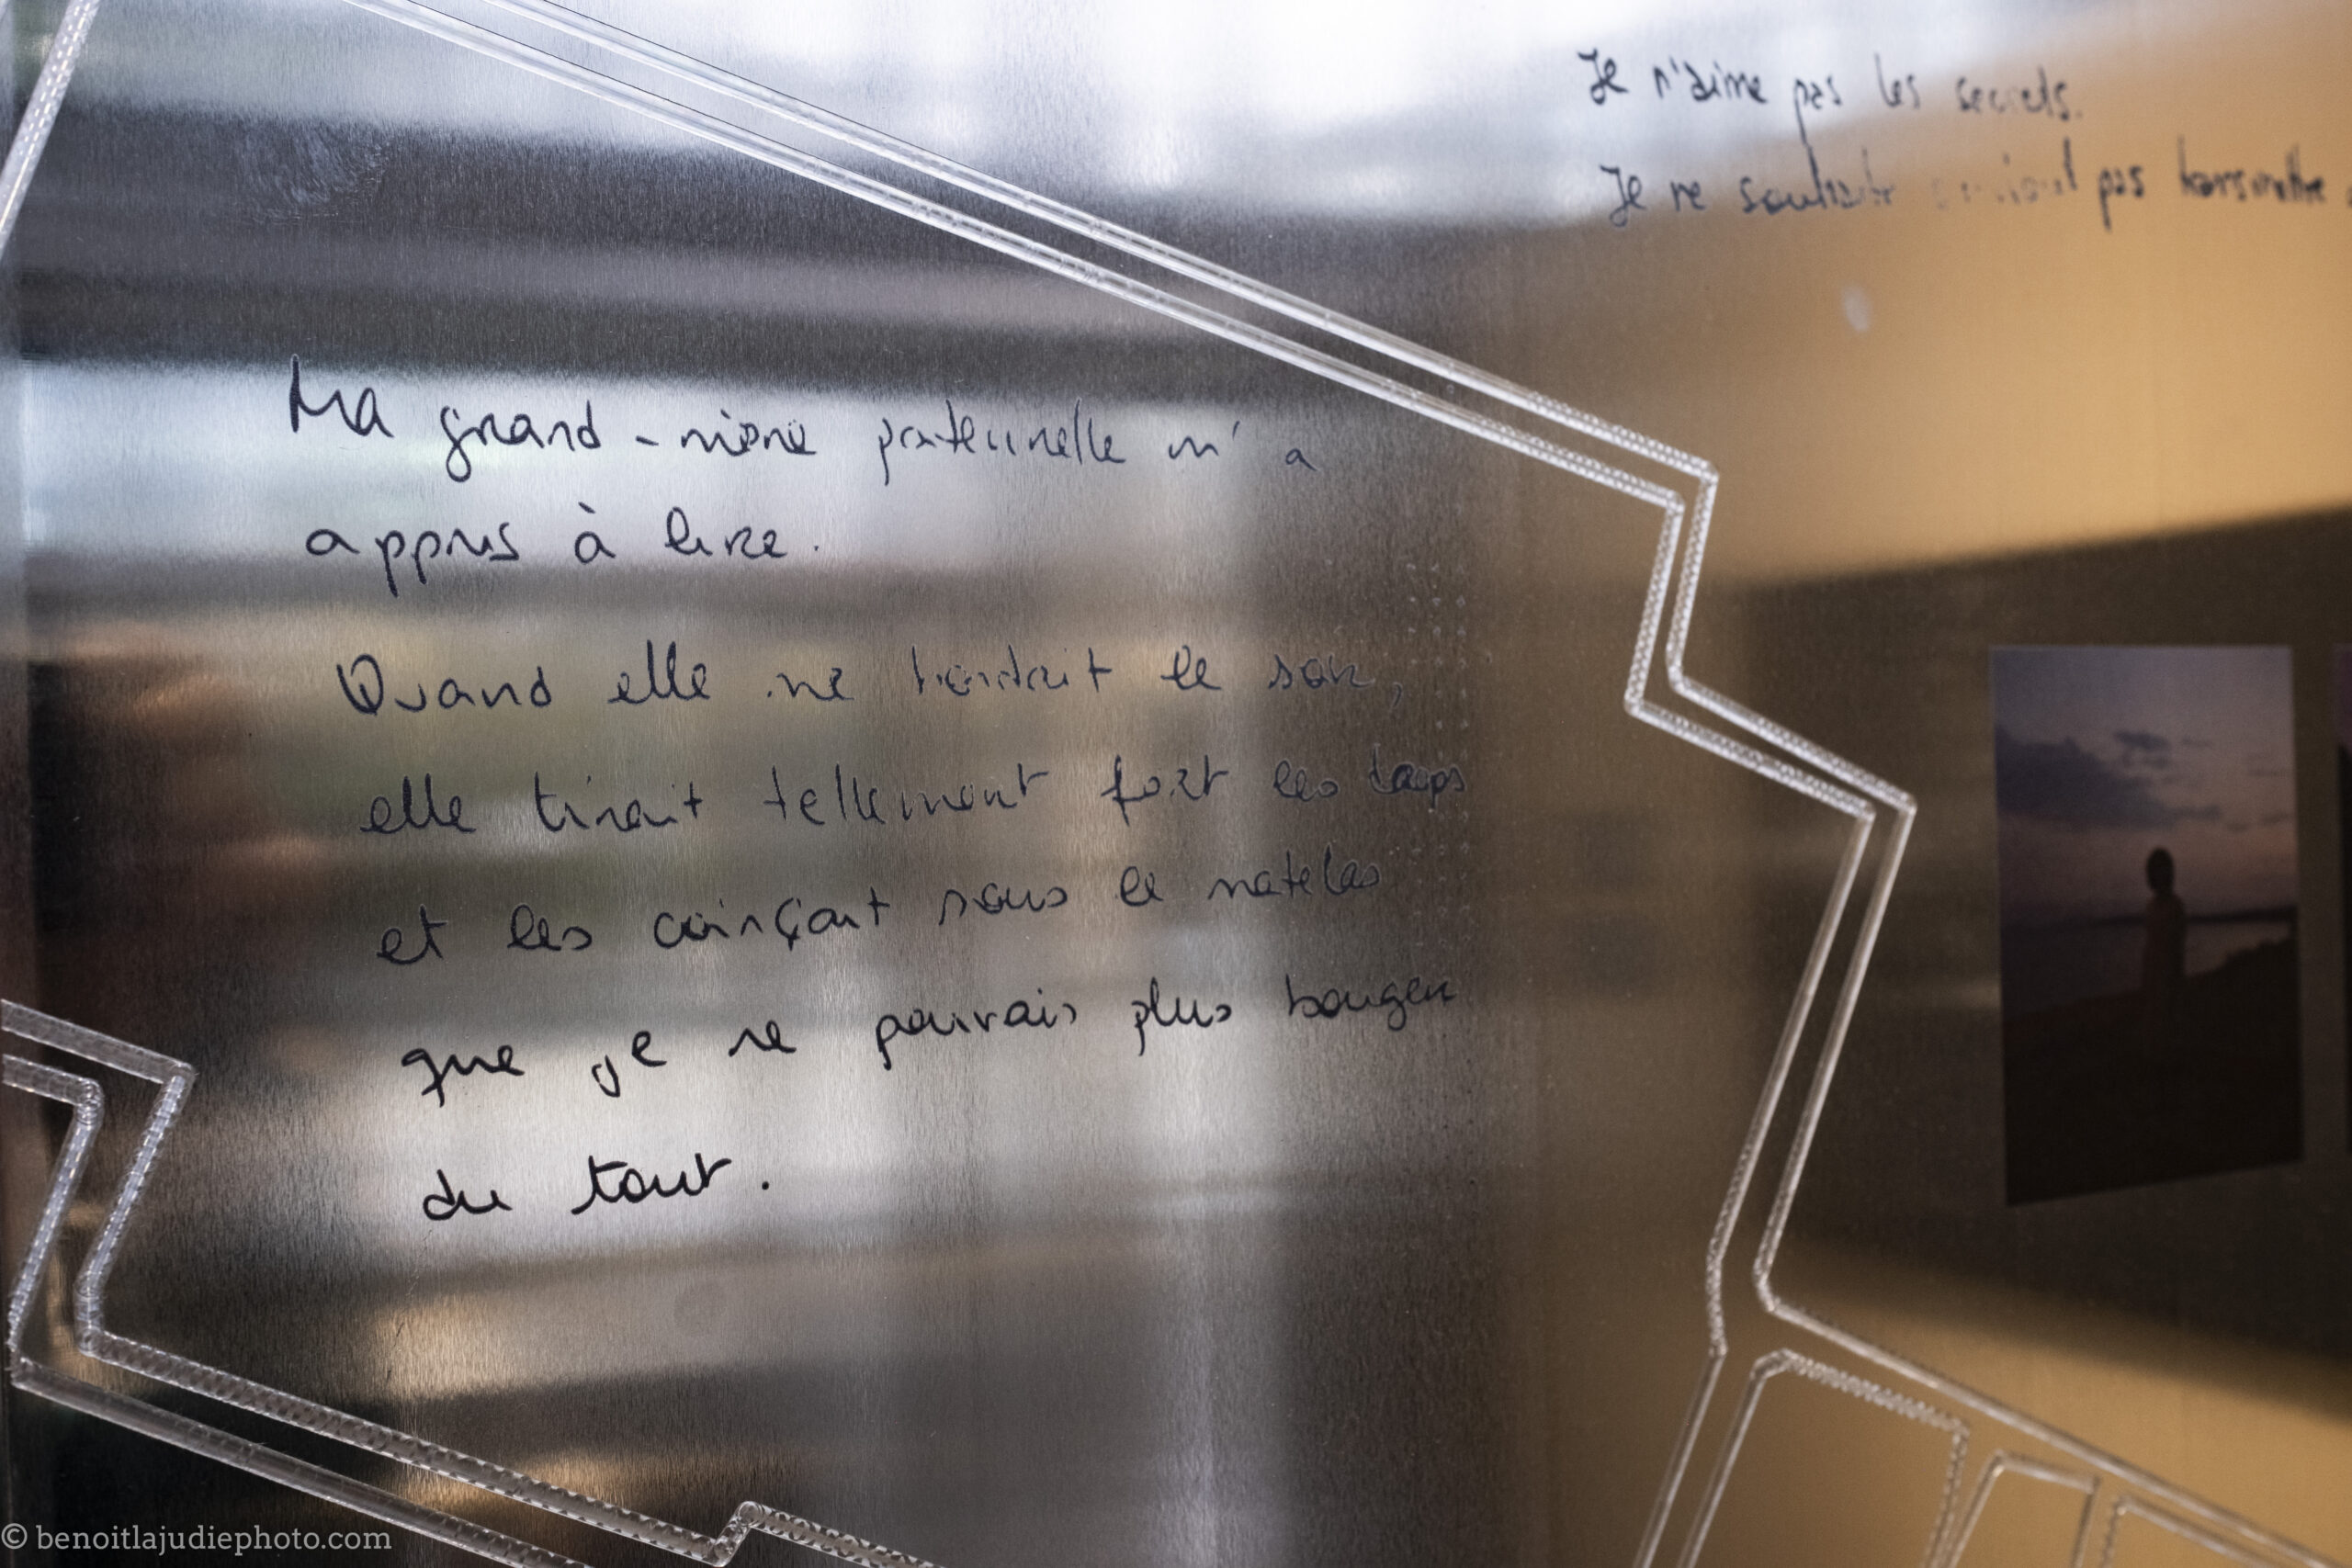 Je n'aime pas les secrets.
Je ne souhaite surtout pas transmettre
Ma grand-mère paternelle m'a
appris à lire.
Quand elle me bordait le soir,
elle tirait tellement fort les draps
et les coinçait sous le matelas
que je ne pouvais plus bouger
du tout.
© benoitlajudiephoto.com